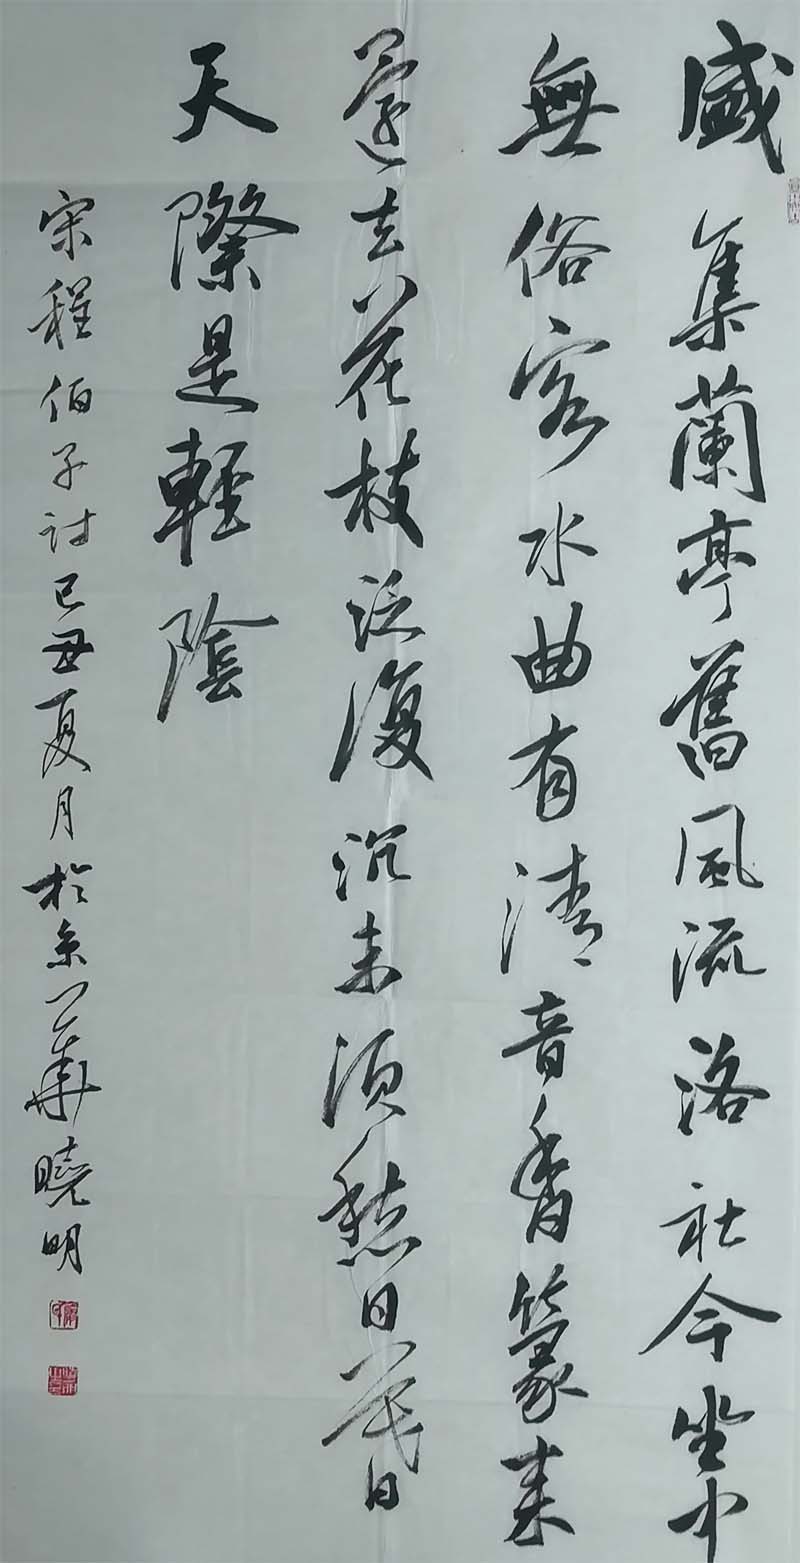 盛集蘭亭舊風流洛社今坐中
無俗客水曲有清音香篆来
還去花枝泛復沉未須愁日暮
天際是輕陰
宋程伯子诗己丑夏月於京華曉明